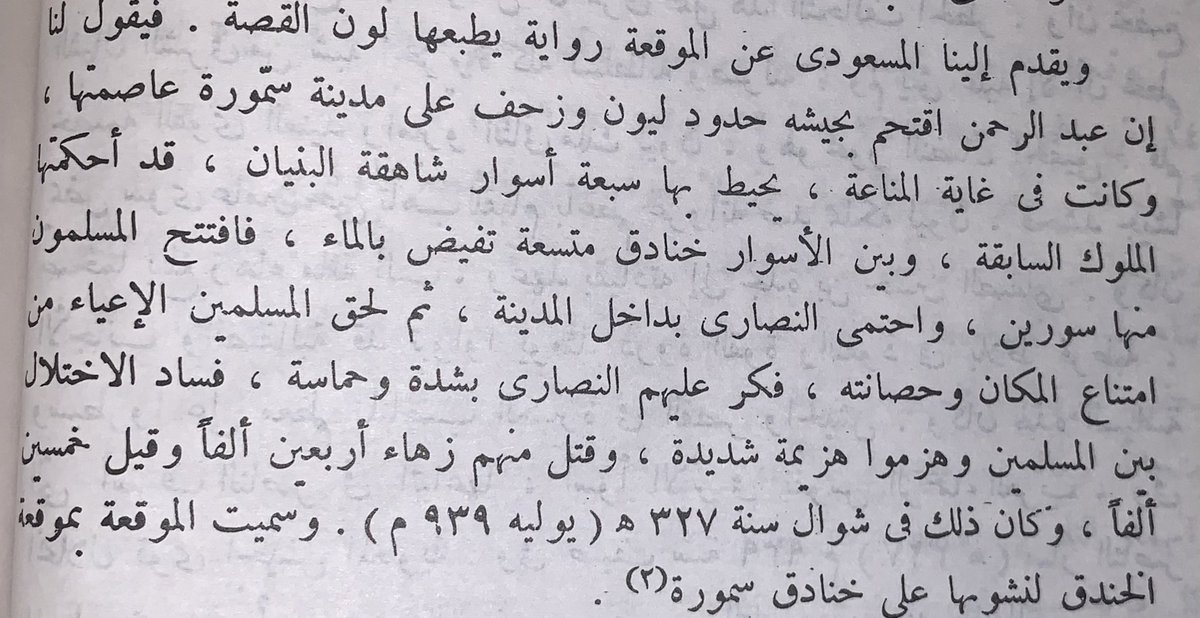 ويقدم إلينا المسعودى عن الموقعة رواية يطبعها لون القصة . فيقول لنا
إن عبد الرحمن اقتحم بجيشه حدود ليون وزحف على مدينة سمّورة عاصمتها ،
وكانت فى غاية المناعة ، يحيط بها سبعة أسوار شاهقة البنيان ، قد أحكمتها
الملوك السابقة ، وبين الأسوار خنادق متسعة تفيض بالماء ، فافتتح المسلمون
منها سورين ، واحتمى النصارى بداخل المدينة ، ثم لحق المسلمين الإعياء من
امتناع المكان وحصانته ، فكر عليهم النصارى بشدة وحماسة ، فساد الاختلال
بين المسلمين وهزموا هزيمة شديدة ، وقتل منهم زهاء أربعين ألفاً وقيل خمسين
ألفاً ، وكان ذلك فى شوال سنة ٣٢٧ ھ ( يوليه ٩٣٩ م ) . وسميت الموقعة بموقعة
الخندق لنشوبها على خنادق سمورة(٢) .